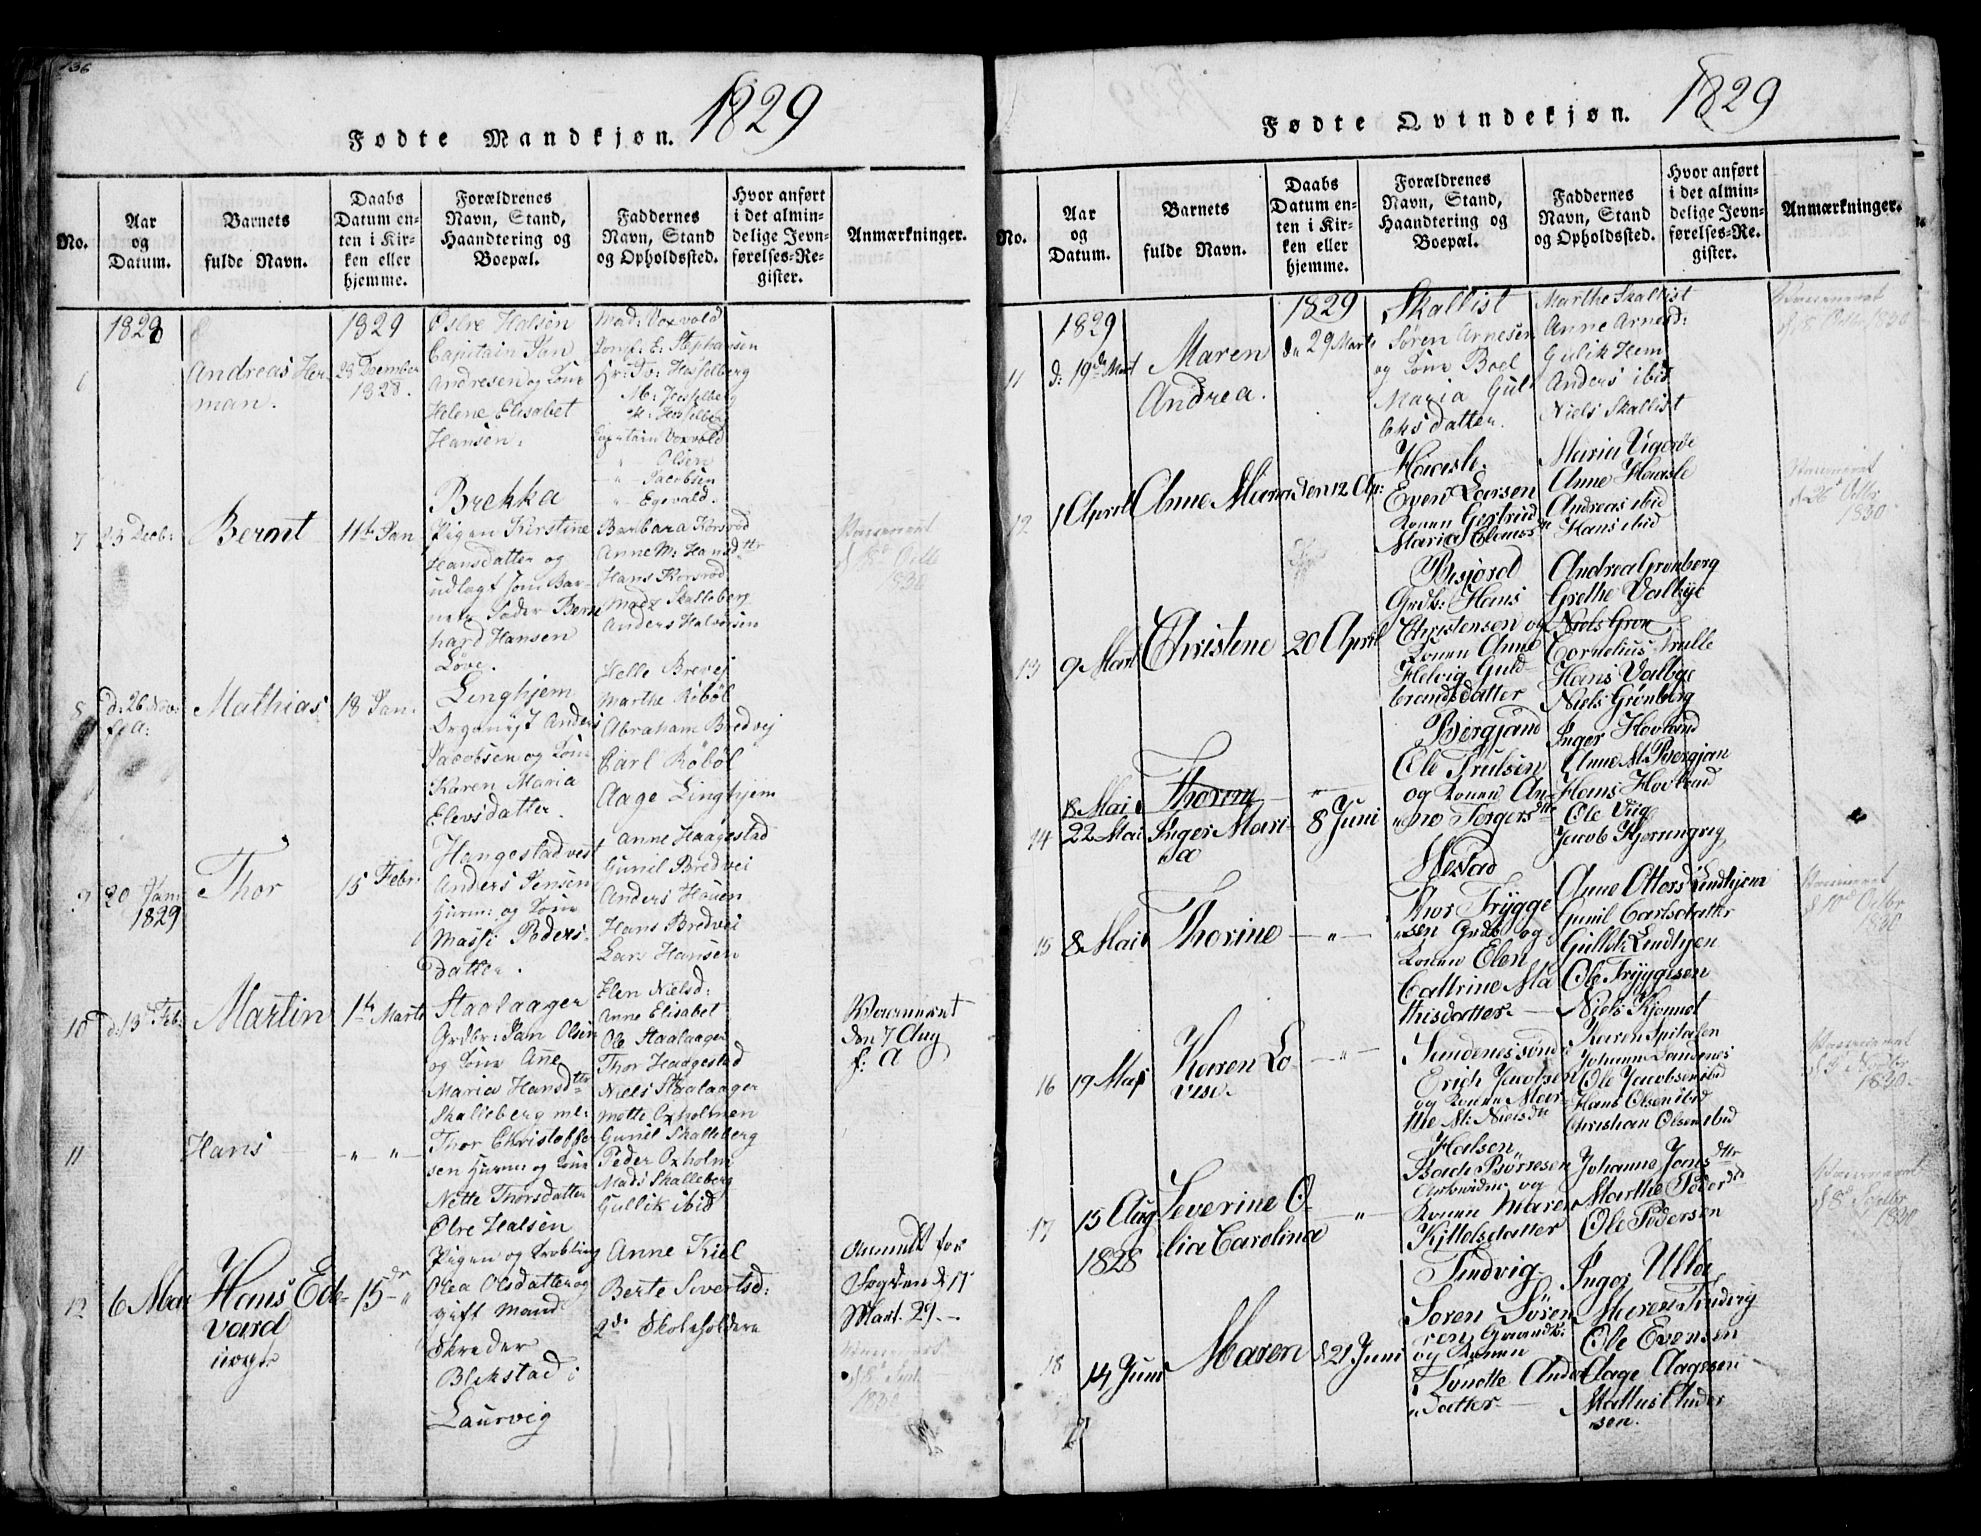 136
Fødte Mandkjøn. 1829
No.
Aar
og
Datum.
Barnets
fulde Navn.
Daabs
Datum en-
ten i Kir-
ken eller
hjemme.
Forældrenes
Navn, Stand,
Haandtering og
Boepæl.
Faddernes
Navn, Stand
og Opholdssted.
Hvor anført
i det almin-
delige Jevn-
førelses-Re-
gister.
Anmærkninger.
1829
6
Andreas Her-
man.
1829
28 December
1828.
Østre Halsen
Capitain Jan
Andresen og Kone
Helene Elisabet
Hansen.
Mad: Voxvold
Jomf: E: Stephansen
Hr: Tr: Hesselberg
M: Hesselberg
H: Hesselberg
Capitain Voxvold
" Olsen
" Jacobsen
" Egevald.
7
Bernt
11te Jan
Brekka
Pigen Kirstine
Hansdatter og
udlagt som Bar-
nets Fader Bern
hard Hansen
Løve.
Barbara Korsrød
Anne M: Hansdttr
Hans Korsrød
Madz Skalleberg
Anders Halvorsen
8
d: 26 Nov:
f: A:
Mathias
18 Jan.
Linghjem
Anders
Jacobsen og Kone
Karen Maria
Elevsdatter.
Helle Brevej
Marthe Röböl
Abraham Bredvej
Carl Röböl
Aage Linghjem
9
20 Jan:
1829
Thor
15 Febr:
Haugestad vest
Anders Jensen
Huusm: og Kone
Masse Peders-
datter.
Anne Haagestad
Gunil Bredvei
Anders Houen
Hans Bredvei
Lars Hansen
10
d: 13 Feb:
Martin
1te Marts
Staalaager
Grdbr: Jan Olsen
og Kone Ane
Maria Hansdttr
Elen Nielsd:
Anne Elisabet
Ole Staalaager
Thor Haagestad
Niels Staalaager
Vaccineret
den 7 Aug
f: A
11
Hans
" "
Skalleberg
Thor Christoffer
sen Huusm og Kone
Nette Thorsdatter
Mette Oxholmen
Gunil Skalleberg
Peder Oxholm
Mads Skalleberg
Gullik ibid
12
6 Mar
Hans Ed-
vard
uægte
15de "
Østre Halsen
Pigen og
Olea Olsdatter og
gift Mand
Skreder
Blikstad i
Laurvig
Anne Kiel
Berte Sivertsd:
2de Skoleholdere
Anmeldt for
Fogden d 17
Mart. 29.
Fødte Qvindekjøn. 1829
No.
Aar
og
Datum.
Barnets
fulde Navn.
Daabs
Datum en-
ten i Kir-
ken eller
hjemme.
Forældrenes
Navn, Stand,
Haandtering og
Boepæl.
Faddernes
Navn, Stand
og Opholdssted.
Hvor anført
i det almin-
delige Jevn-
førelses-Re-
gister.
Anmærkninger.
11
1829
d: 19de Mart
Maren
Andrea.
1829
dn 29 Marts
Skallist
Søren Arnesen
og Kone Boel
Maria Gul
leksdatter.
Marthe Skallist
Anne Arnesd:
Gulik Hem
Anders ibid
Niels Skallist
Vaccineret
1830
12
1 April
Anne Maria
den 12 Apr:
Haasle.
Even Larsen
Konen Gertrud
Maria Clausdtr
Maria Vegerøe
Anne Haasle
Andreas ibid
Hans ibid
Vaccineret
d 26 Octbr
1830
13
9 Mart
Christene
20 April
Besjord
Grdb: Hans
Christensen og
Konen Anne
Helvig Guld-
brandsdatter
Andrea Grønberg
Grethe Valbye
Niels Gron
Cornelius Trulle
Hans Valbye
Niels Grønberg
14
8 Mai
22 Mai
Thorene
Inger Mari-
a
"
8 Juni
Bergjand
Ole Trulsen
og Konen An-
ne Torgersdtr
Inger Hovland
Anne M. Bergjan
Hans Hovland
Ole Viig
Jacob Kjørungvig
15
8 Mai
Thorine
"
Mestad
Thor Trygge
sen Grdb og
Konen Elen
Cattrine Ma
thisdatter.
Anne Ottersd Lindhjem
Gunil Carlsdatter
Gullek Lindhjem
Ole Tryggesen
Niels Kjonnet
Vaccineret
d 10 Octbr
1830
16
19 Mai
Karen Lo-
vise.
"
Sundenes søndre
Erich Jacobsen
og Konen Mar
the M: Nielsdtr
Karen Spitalen
Johanne Sundenes
Ole Jacobsen ibid
Hans Olsen ibid
Christian Olsen ibid
Vaccineret
1830.
17
15 Aug
1828
Severine O-
lia Carolina
"
Halsen
Børresen
Arbeidsm. og
Konen Maren
Kjttelsdatter
Johanne Jansdttr
Marthe Pedersdtr
Ole Pedersen
Vaccineret
1830
18
14 Juni
Maren
d 21 Juni
Tindvig
Søren Sören
sen
og Konen
Lonette Anders
datter
Inger Ulla
Maren Tindvig
Ole Evensen
Aage Aagesen
Mathis Ander
sen.
21